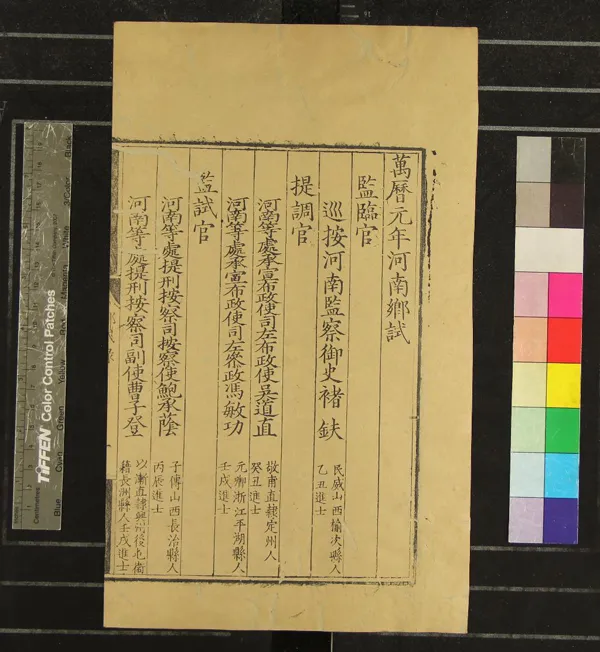 萬曆元年河南鄉試
監臨官
巡按河南監察御史褚鈇
民威山西榆次縣人
乙丑進士
提調官
河南等處承宣布政使司左布政使吳道直
敬甫直隸定州人
癸丑進士
河南等處承宣布政使司左參政馮敏功
元卿浙江平湖縣人
壬戌進士
監試官
河南等處提刑按察司按察使鮑承蔭
子傳山西長治縣人
丙辰進士
河南等處提刑按察司副使曹子登
以漸直隸興州後屯衞
籍長洲縣人壬戌進士
TIFFEN Color Control Patches
Blue
Cyan
Green
Yellow
Red
Magenta
White
3/Color
Black
Centimetres